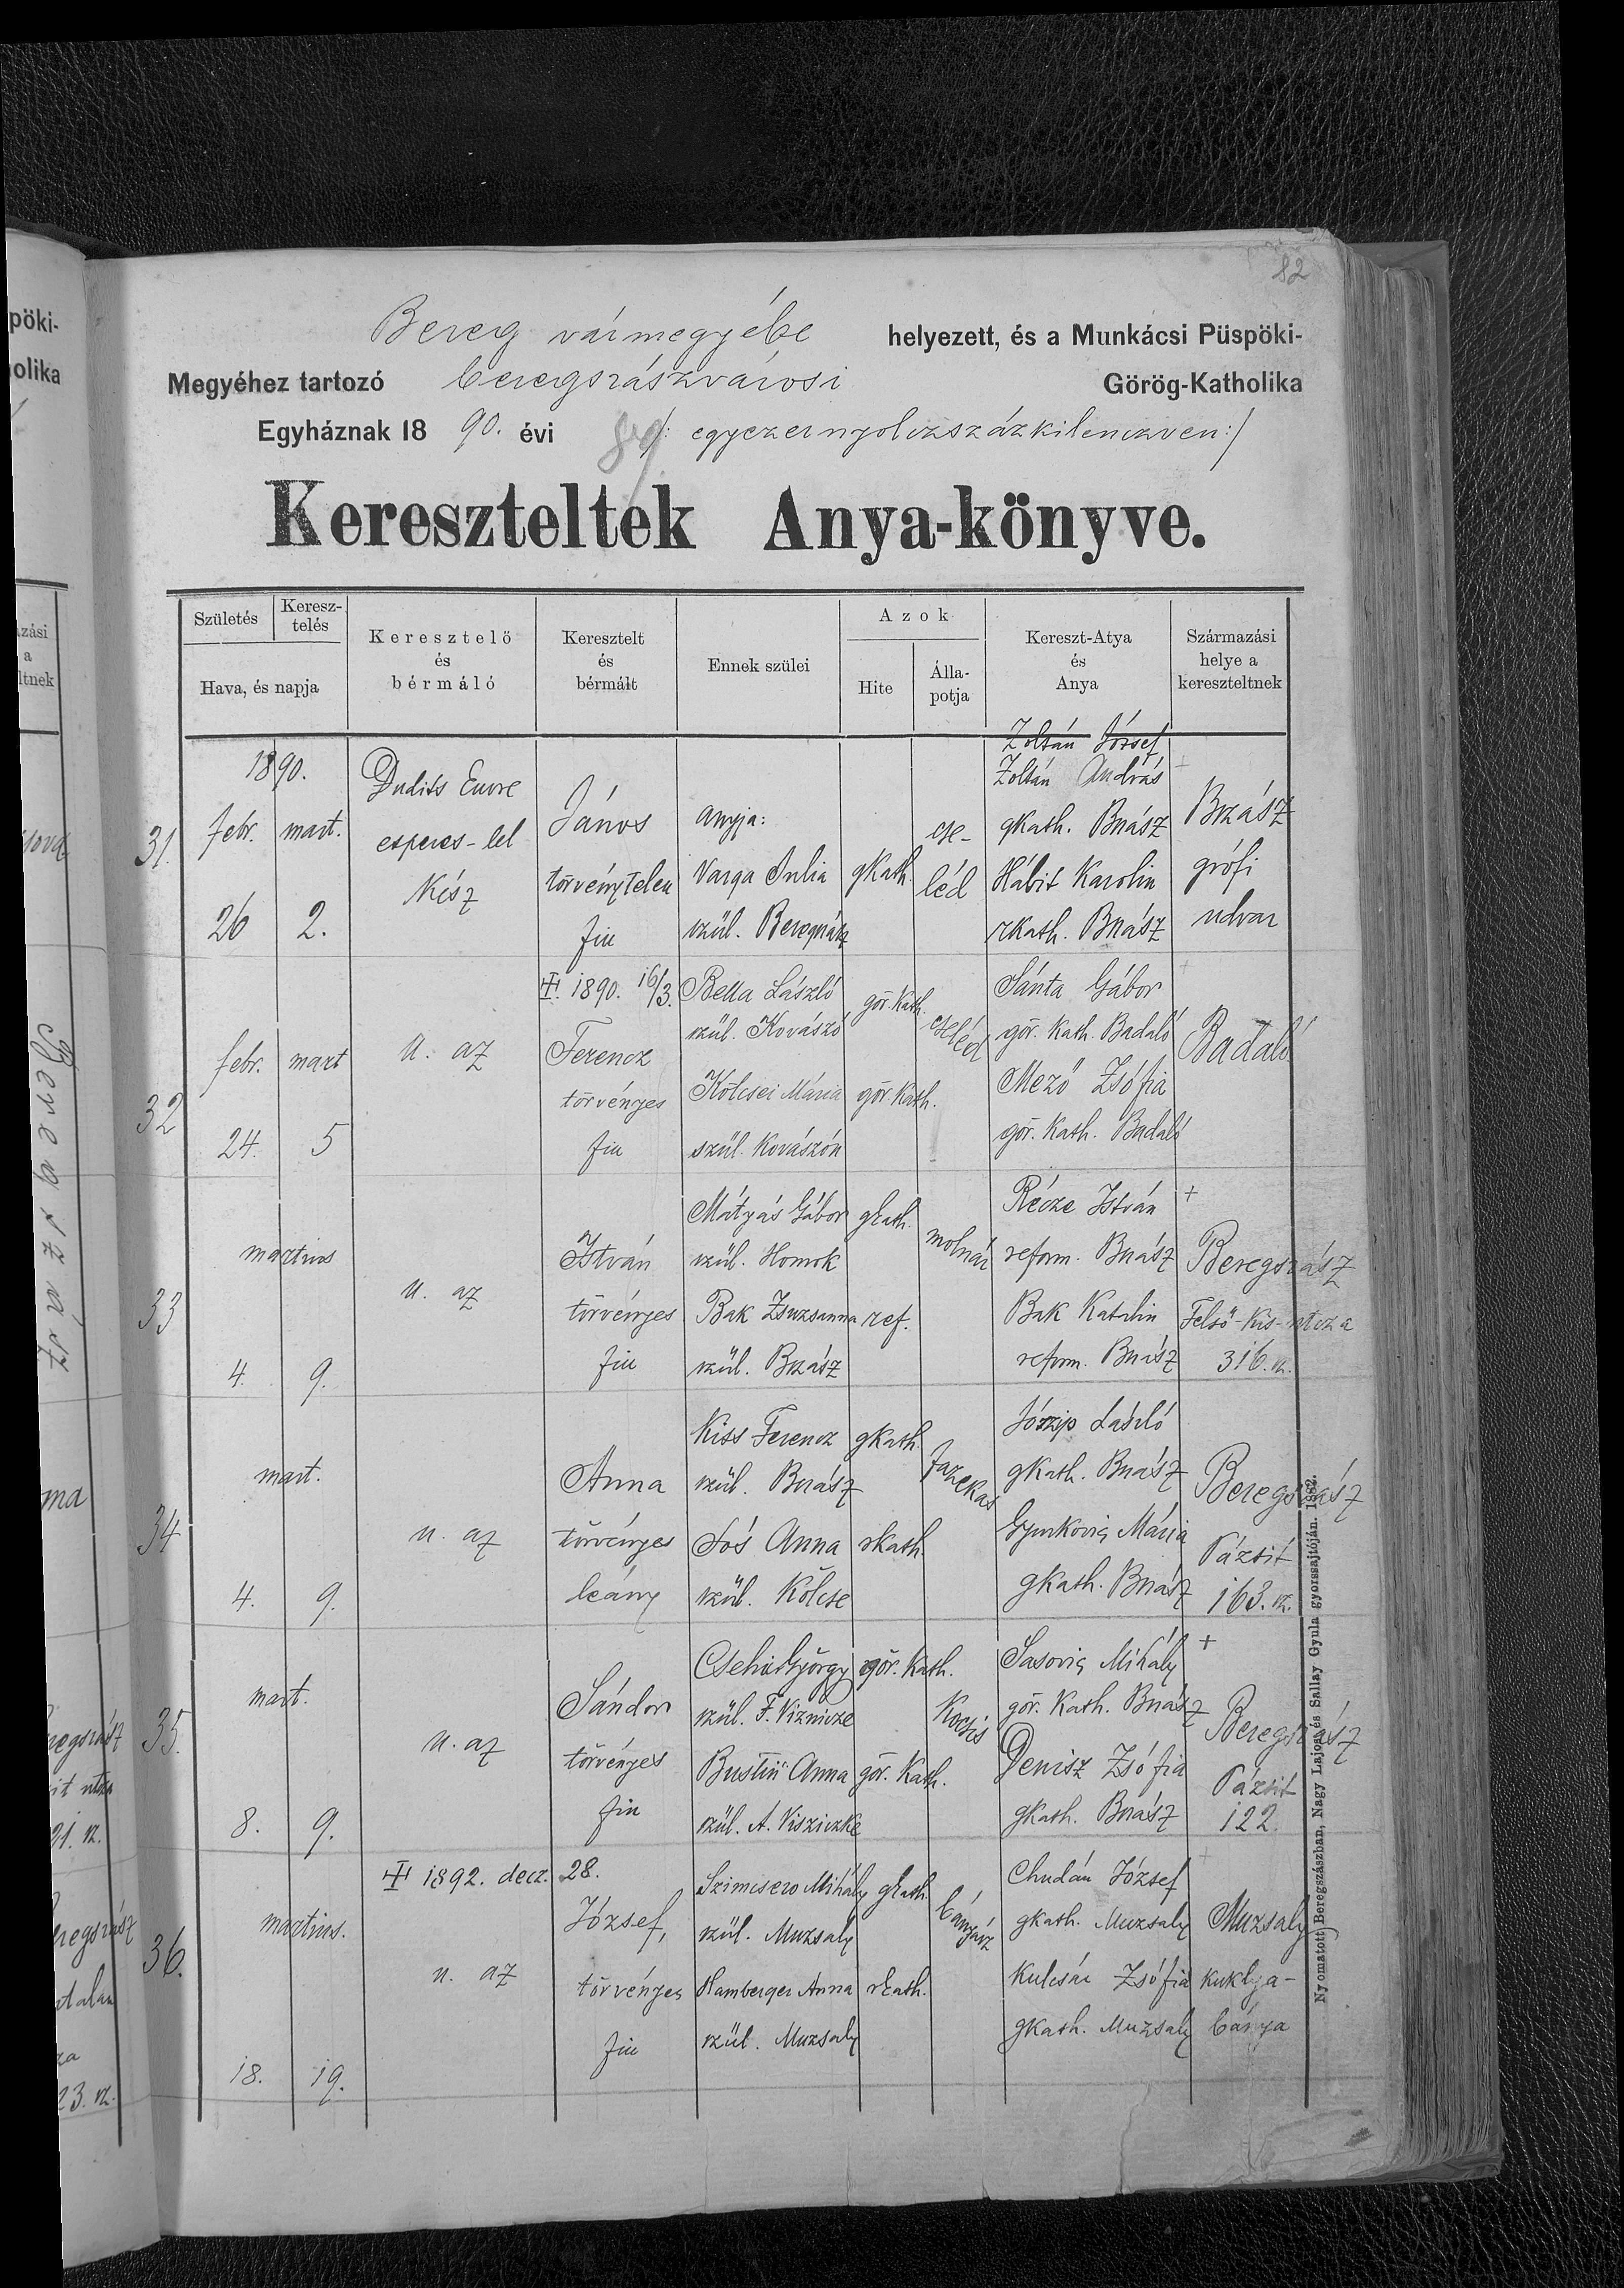 82
Bereg vármegyébe helyezett, és a Munkácsi Püspöki-
Megyéhez tartozó beregszászvárosi Görög-Katholika
Egyháznak 18 90. évi /: egyezernyolczszázkilenczven :/
Kereszteltek Anya-könyve.
Születés
Keresz-
telés
Hava, és napja
Keresztelő
és
bérmáló
Keresztelt
és
bérmált
Ennek szülei
Azok
Hite
Álla-
potja
Kereszt-Atya
és
Anya
Származási
helye a
kereszteltnek
31.
1890.
febr. mart.
26 2.
Dudits Emre
esperes-lel
kész
János
törvénytelen
fiu
anyja:
Varga Julia
szül. Beregszász
gkath.
cse-
léd
Zoltán József
Zoltán András
gkath. Bszász
Hábit Karolin
rkath. Bszász
Bszász
grófi
udvar
32
febr. mart
24. 5
u. az
1890. 16/3.
Ferencz
törvényes
fiu
Bella László
szül. Kovászó
Kölcsei Mária
szül. Kovászón
gör. kath.
gör. kath.
cseléd
Sánta Gábor
gör. kath. Badaló
Mező Zsófia
gör. kath. Badaló
Badaló
33
martius
4. 9.
u. az
István
törvényes
fiu
Mátyás Gábor
szül. Homok
Bak Zsuzsanna
szül. Bszász
gkath.
ref.
molnár
Récze István
reform. Bszász
Bak Katalin
reform. Bszász
+
Beregszász
Felső-Kis-utcza
316. sz.
34
mart.
4. 9.
u. az
Anna
törvényes
leány
Kiss Ferencz
szül. Bszász
Sós Anna
szül. Kölcse
gkath.
rkath.
fazekas
Józsip László
gkath. Bszász
Gyurkovis Mária
gkath. Bszász
Beregszász
Pázsit
163. sz.
35.
mart.
8. 9.
u. az
Sándor
törvényes
fiu
Csehi György
szül. F. Viznicze
Bustin Anna
szül. A. Visziczke
gör. kath.
gör. kath.
kocsis
Sasovis Mihály
gör. kath. Bszász
Denisz Zsófia
gkath. Bszász
+
Beregszász
Pázsit
122.
36.
martius.
18. 19.
1892. decz. 28.
u. az
József,
törvényes
fiu
Mihály
szül. Muzsaly
Hamberger Anna
szül. Muzsaly
gkath.
rkath.
bányász
Chudán József
gkath. Muzsaly
Kulcsár Zsófia
gkath. Muzsaly
Muzsaly
kuklya-
bánya
Nyomatott Beregszászban, Nagy Lajos és Sallay Gyula gyorssajtóján. 1882.